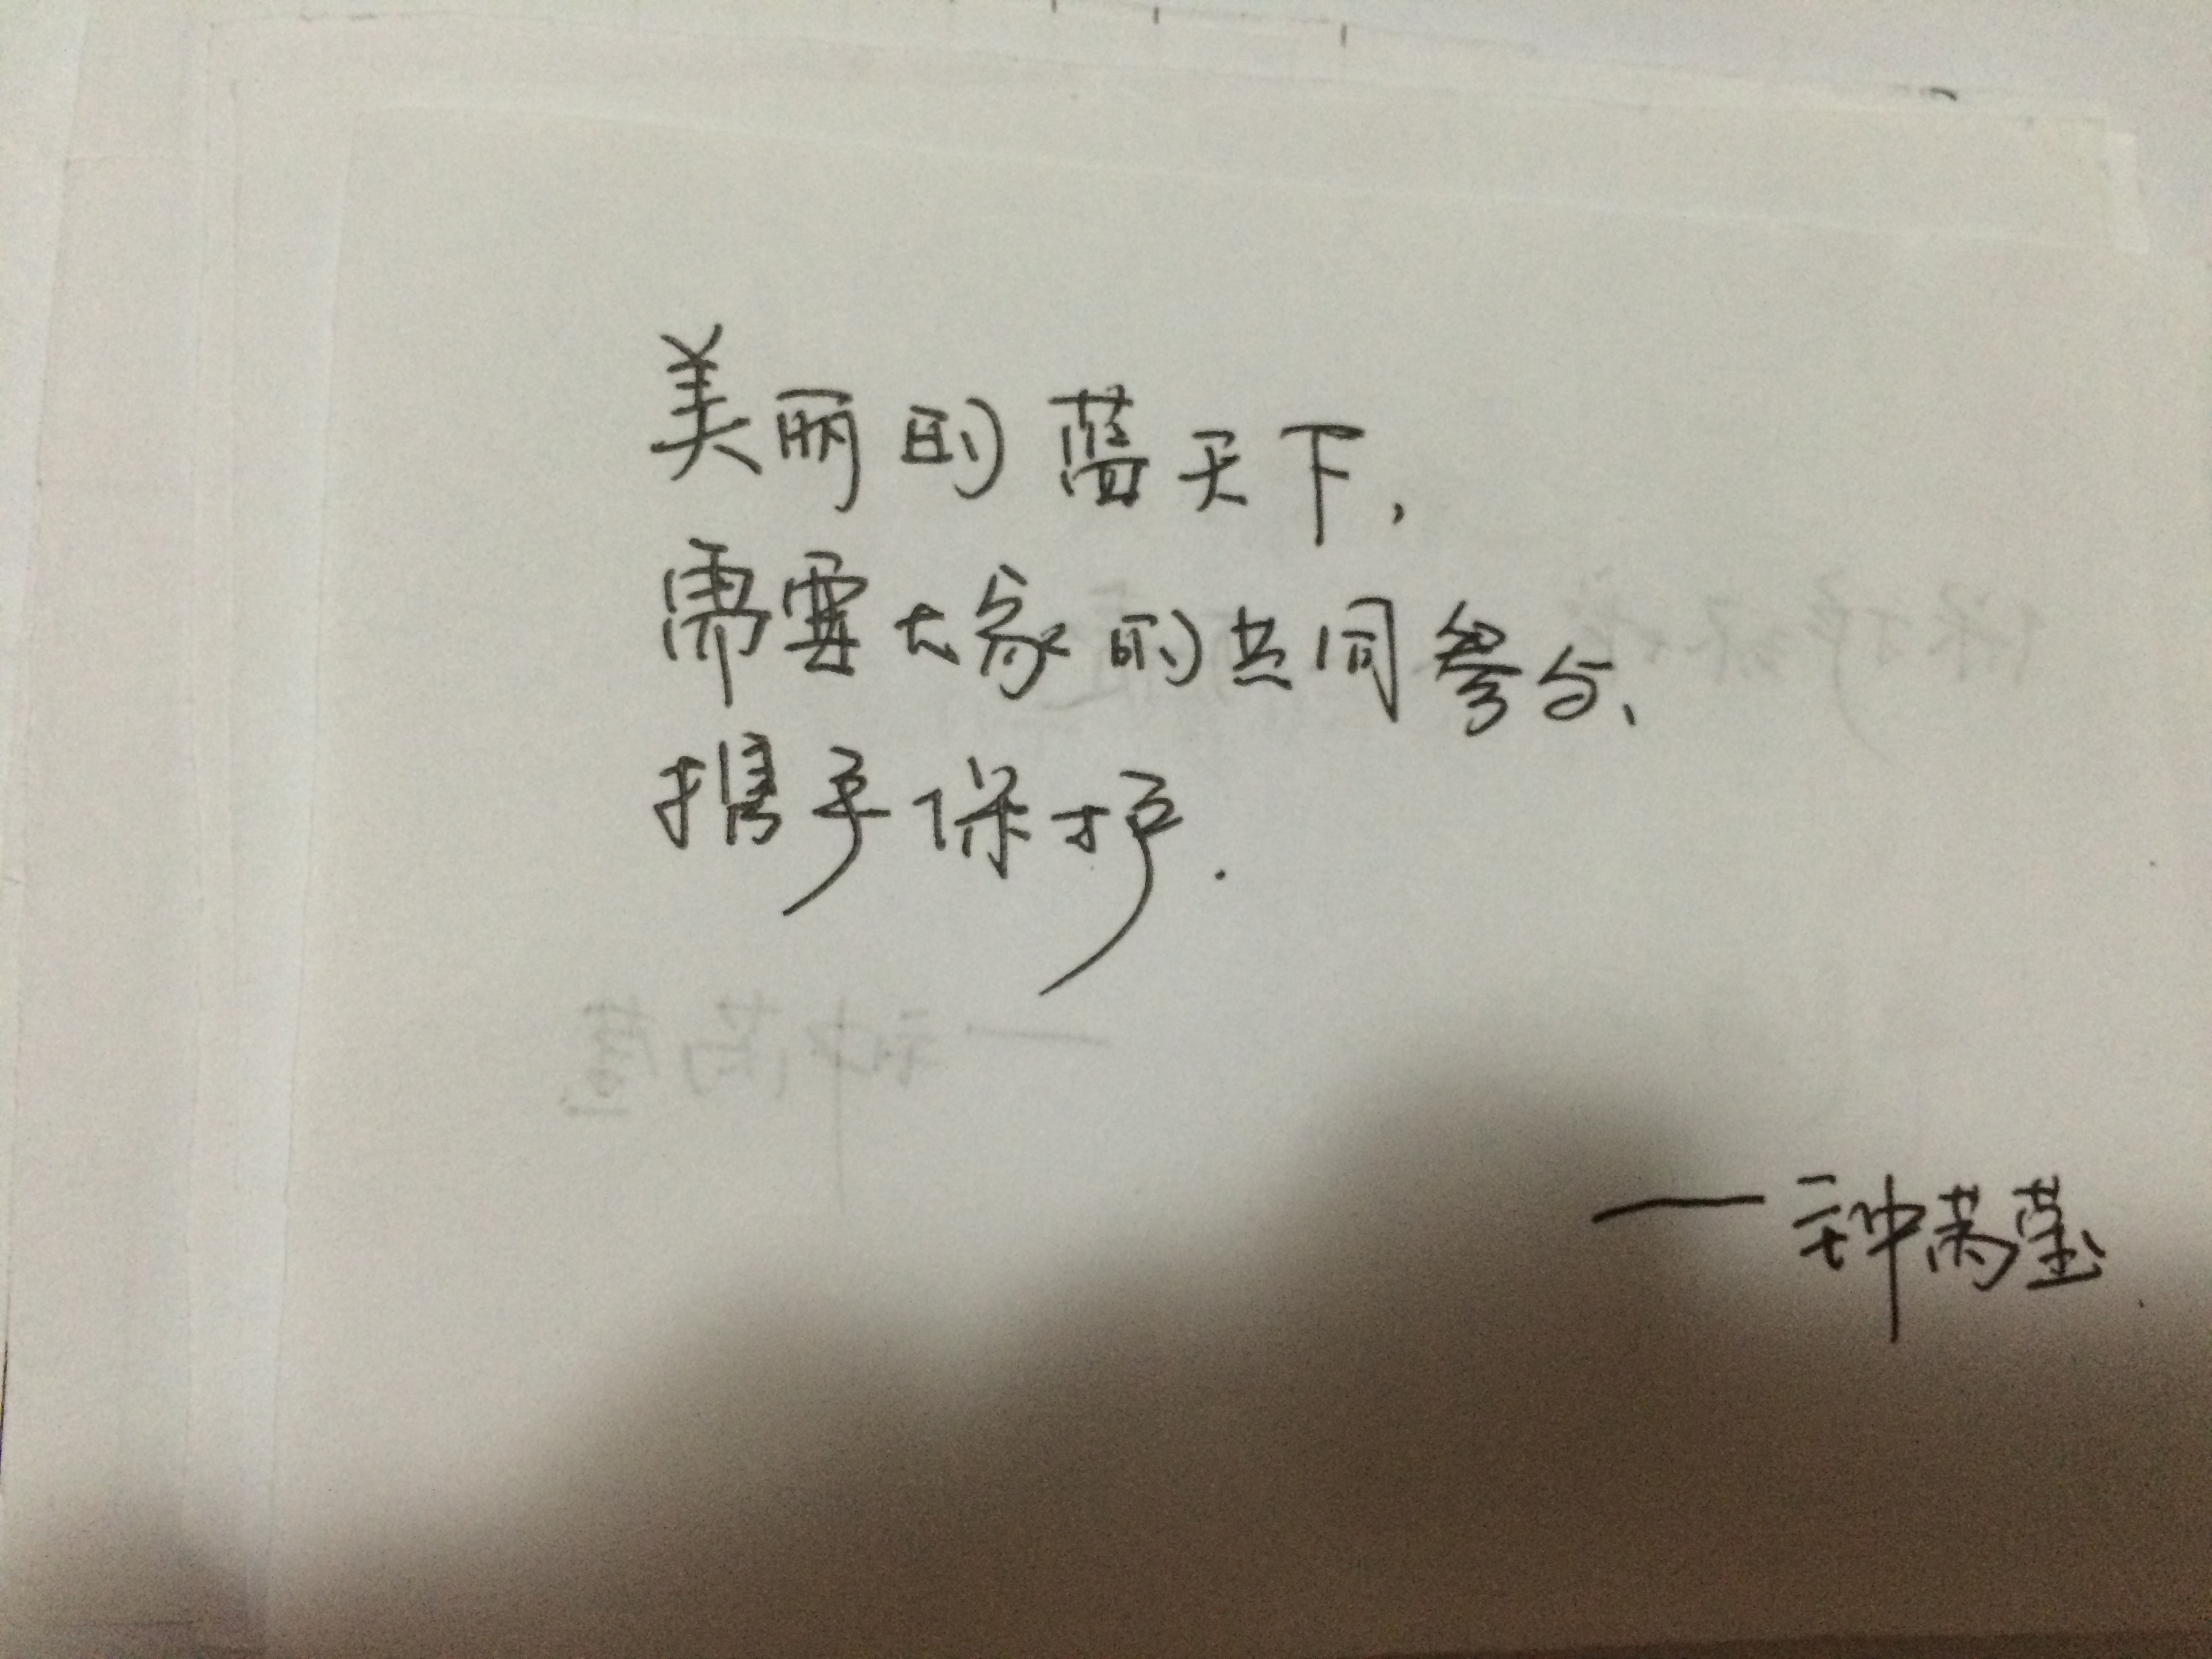 美丽的蓝天下，
需要大家的共同参与、
携手保护.
——钟芮莹